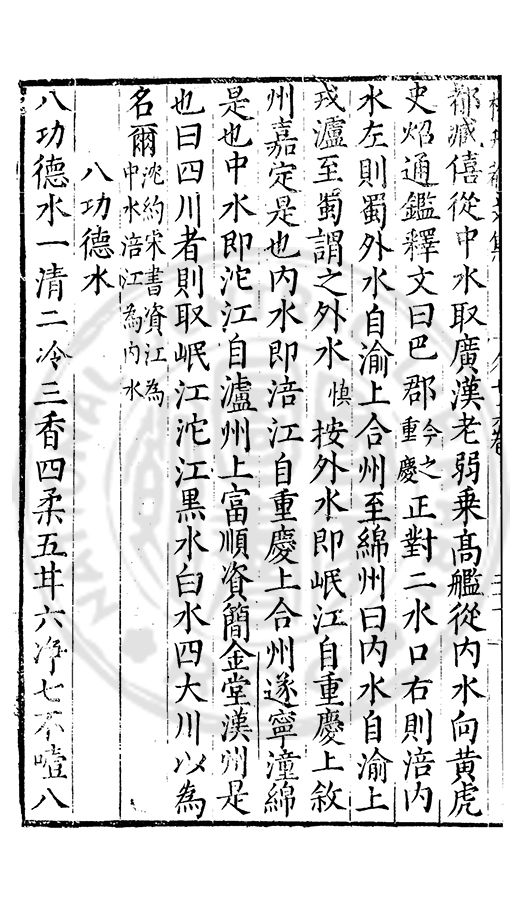 都臧僖從中水取廣漢老弱乗高艦從内水向黄虎
史炤通鑑釋文曰巴郡今之重慶正對二水口右則涪内
水左則蜀外水自渝上合州至綿州曰内水自渝上
戎瀘至蜀謂之外水慎按外水即岷江自重慶上敘
州嘉定是也内水即涪江自重慶上合州遂寧潼綿
是也中水即沱江自瀘州上富順資簡金堂漢州是
也曰四川者則取岷江沱江黒水白水四大川以為
名爾沈約宋書資江為中水涪江為内水
八功德水
八功德水一清二冷三香四柔五甘六净七不噎八